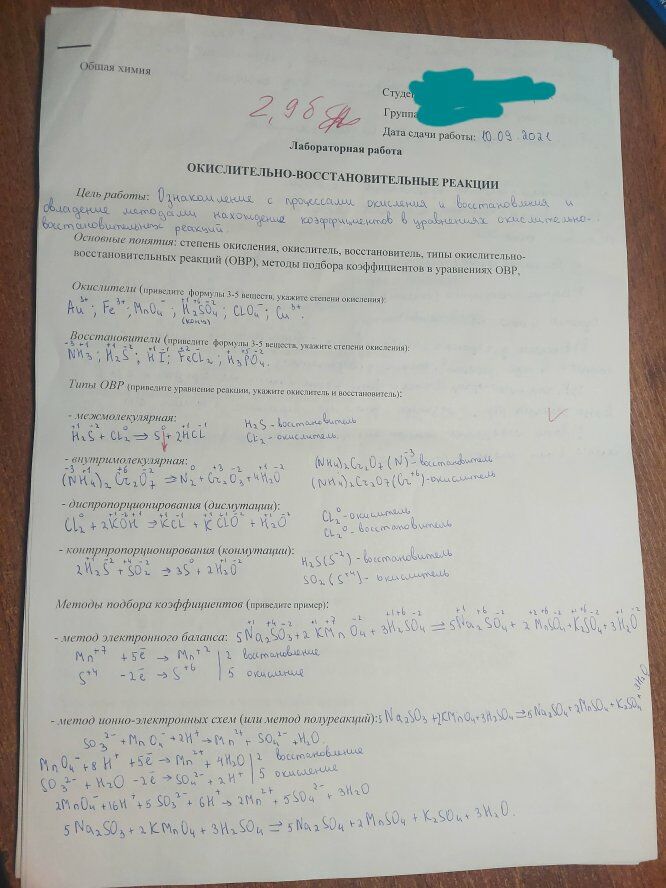 Общая химия
Студе
2,9б
Группа
Дата сдачи работы: 10.09.2021
Лабораторная работа
ОКИСЛИТЕЛЬНО-ВОССТАНОВИТЕЛЬНЫЕ РЕАКЦИИ
Цель работы: Ознакомление с процессами окисления и восстановления и
овладение методами нахождение коэффициентов в уравнениях окислительно-
восстановительных реакций.
Основные понятия: степень окисления, окислитель, восстановитель, типы окислительно-
восстановительных реакций (ОВР), методы подбора коэффициентов в уравнениях ОВР,
Окислители (приведите формулы 3-5 веществ, укажите степени окисления):
Au³⁺; Fe³⁺; MnO₄⁻; H₂⁺¹S⁺⁶O₄⁻²; ClO₄⁻; Cu²⁺.
(конц)
Восстановители (приведите формулы 3-5 веществ, укажите степени окисления):
N⁻³H₃⁺¹; H₂⁺¹S⁻²; H⁺¹I⁻; Fe⁺²Cl₂; H₃⁺PO₄⁻².
Типы ОВР (приведите уравнение реакции, укажите окислитель и восстановитель):
- межмолекулярная:
H₂⁺¹S⁻² + Cl₂⁰ ⇒ S⁰↓ + 2H⁺¹Cl⁻¹ H₂S - восстановитель
Cl₂ - окислитель.
- внутримолекулярная:
(N⁻³H₄⁺¹)₂Cr₂⁺⁶O₇⁻² ⇒ N₂⁰ + Cr₂⁺³O₃⁻² + 4H₂⁺¹O⁻² (NH₄)₂Cr₂O₇ (N)⁻³ - восстановитель
(NH₄)₂Cr₂O₇ (Cr⁺⁶) - окислитель
- диспропорционирования (дисмутации):
Cl₂⁰ + 2K⁺¹O⁻²H⁺¹ ⇒ K⁺¹Cl⁻¹ + K⁺¹Cl⁺¹O⁻² + H₂⁺¹O⁻² Cl₂⁰ - окислитель
Cl₂⁰ - восстановитель
- контрпропорционирования (конмутации):
2H₂⁺¹S⁻² + S⁺⁴O₂⁻² ⇒ 3S⁰ + 2H₂⁺¹O⁻² H₂S (S⁻²) - восстановитель
SO₂ (S⁺⁴) - окислитель
Методы подбора коэффициентов (приведите пример):
- метод электронного баланса: 5Na₂⁺¹S⁺⁴O₃⁻² + 2K⁺¹Mn⁺⁷O₄⁻² + 3H₂⁺¹S⁺⁶O₄⁻² ⇒ 5Na₂⁺¹S⁺⁶O₄⁻² + 2Mn⁺²S⁺⁶O₄⁻² + K₂⁺¹S⁺⁶O₄⁻² + 3H₂⁺¹O⁻²
Mn⁺⁷ + 5ē → Mn⁺² | 2 восстановление
S⁺⁴ - 2ē → S⁺⁶ | 5 окисление
- метод ионно-электронных схем (или метод полуреакций): 5Na₂SO₃ + 2KMnO₄ + 3H₂SO₄ ⇒ 5Na₂SO₄ + 2MnSO₄ + K₂SO₄ + 3H₂O
SO₃²⁻ + MnO₄⁻ + 2H⁺ → Mn²⁺ + SO₄²⁻ + H₂O
MnO₄⁻ + 8H⁺ + 5ē → Mn²⁺ + 4H₂O | 2 восстановление
SO₃²⁻ + H₂O - 2ē → SO₄²⁻ + 2H⁺ | 5 окисление
2MnO₄⁻ + 16H⁺ + 5SO₃²⁻ + 6H⁺ → 2Mn²⁺ + 5SO₄²⁻ + 3H₂O
5Na₂SO₃ + 2KMnO₄ + 3H₂SO₄ ⇒ 5Na₂SO₄ + 2MnSO₄ + K₂SO₄ + 3H₂O.